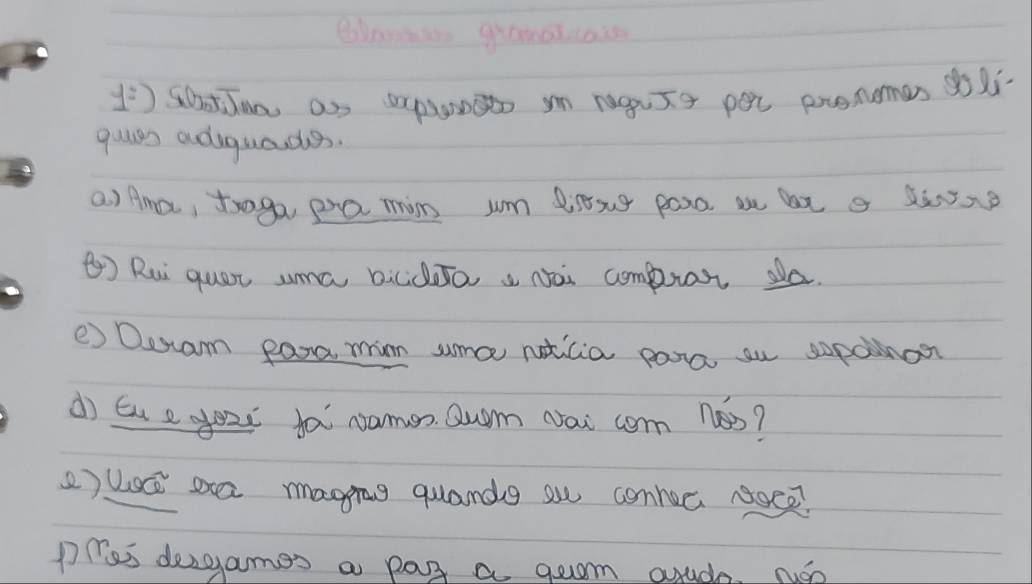 1º) Substitua as expressões em negrito por pronomes oblí-
quos adequados.
a) Ana, traga pra mim um livro para eu ler o livro
b) Rui quer uma bicicleta e vai comprar ela.
c) Deram para mim uma notícia para eu espalhar
d) Eu e José já vamos. Quem vai com nós?
e) Você era magro quando eu conheci você?
f) Nós desejamos a paz a quem ajuda nós